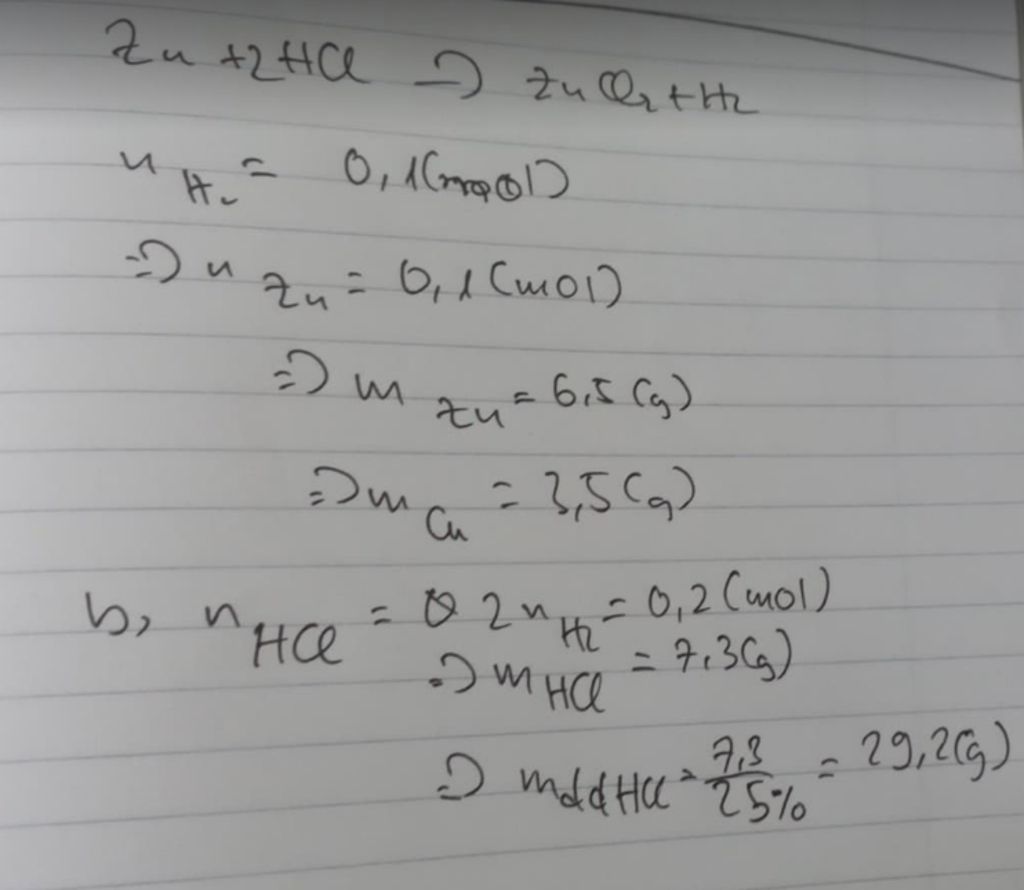 Zn + 2HCl => ZnCl₂ + H₂
n H₂ = 0,1(mol)
=> n Zn = 0,1 (mol)
=> m Zn = 6,5 (g)
=> m Cu = 3,5 (g)
b, n HCl = 2n H₂ = 0,2 (mol)
=> m HCl = 7,3(g)
=> mddHCl = 7,3/25% = 29,2(g)